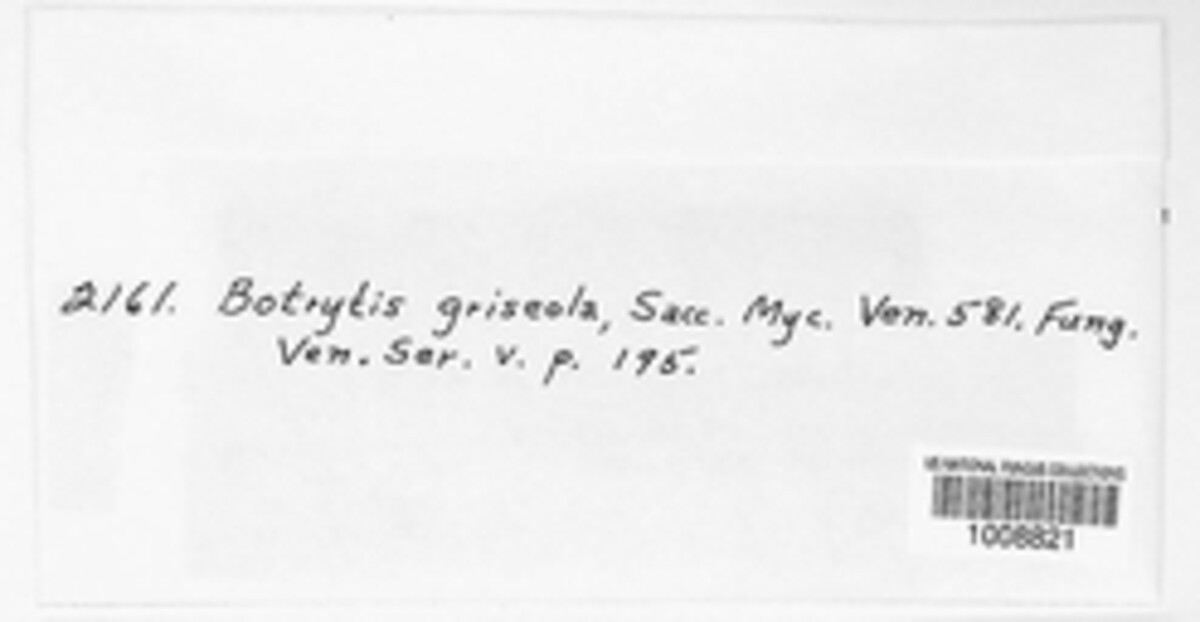 2161. Botrytis griseola, Sacc. Myc. Ven. 581. Fung.
Ven. Ser. v. p. 195.
US NATIONAL FUNGUS COLLECTIONS
1008821